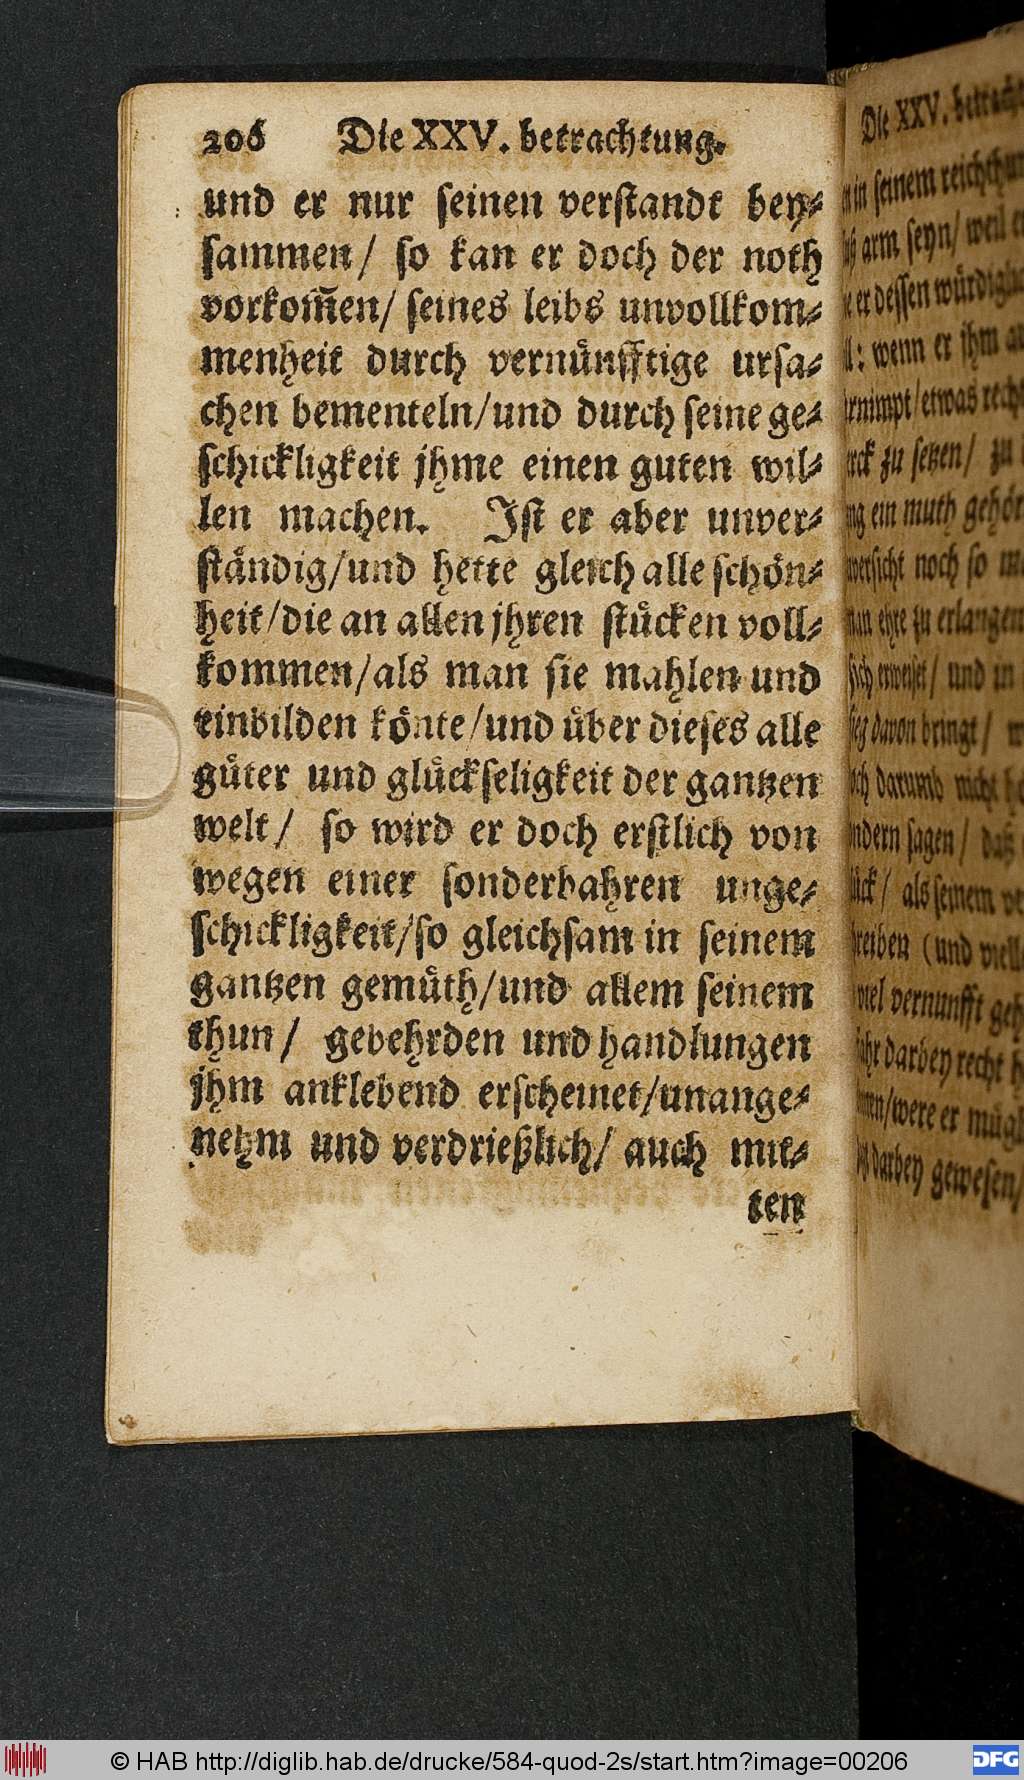 206 Die XXV. betrachtung.
und er nur seinen verstandt bey⸗
sammen/ so kan er doch der noth
vorkom̃en/ seines leibs unvollkom⸗
menheit durch vernuͤnfftige ursa⸗
chen bementeln/und durch seine ge⸗
schickligkeit jhme einen guten wil⸗
len machen. Ist er aber unver⸗
staͤndig/und hette gleich alle schoͤn⸗
heit/die an allen jhren stuͤcken voll⸗
kommen/als man sie mahlen und
einbilden koͤnte/und uͤber dieses alle
guͤter und gluͤckseligkeit der gantzen
welt/ so wird er doch erstlich von
wegen einer sonderbahren unge⸗
schickligkeit/so gleichsam in seinem
gantzen gemuͤth/und allem seinem
thun/ gebehrden und handlungen
jhm anklebend erscheinet/unange⸗
nehm und verdrießlich/ auch mit⸗
ten
Die XXV. betracht
in seinem reichthu
arm seyn/ weil
er dessen wuͤrdig
: wenn er jhm
/etwas
zu setzen/ zu
ein muth gehoͤr
noch so
ehre zu erlangen
/ und in
davon bringt/
darumb nicht
ndern sagen/ daß
/ als seinem
reiben (und
viel vernunfft
darbey recht
/were er
darbey gewesen/
© HAB http://diglib.hab.de/drucke/584-quod-2s/start.htm?image=00206
DFG